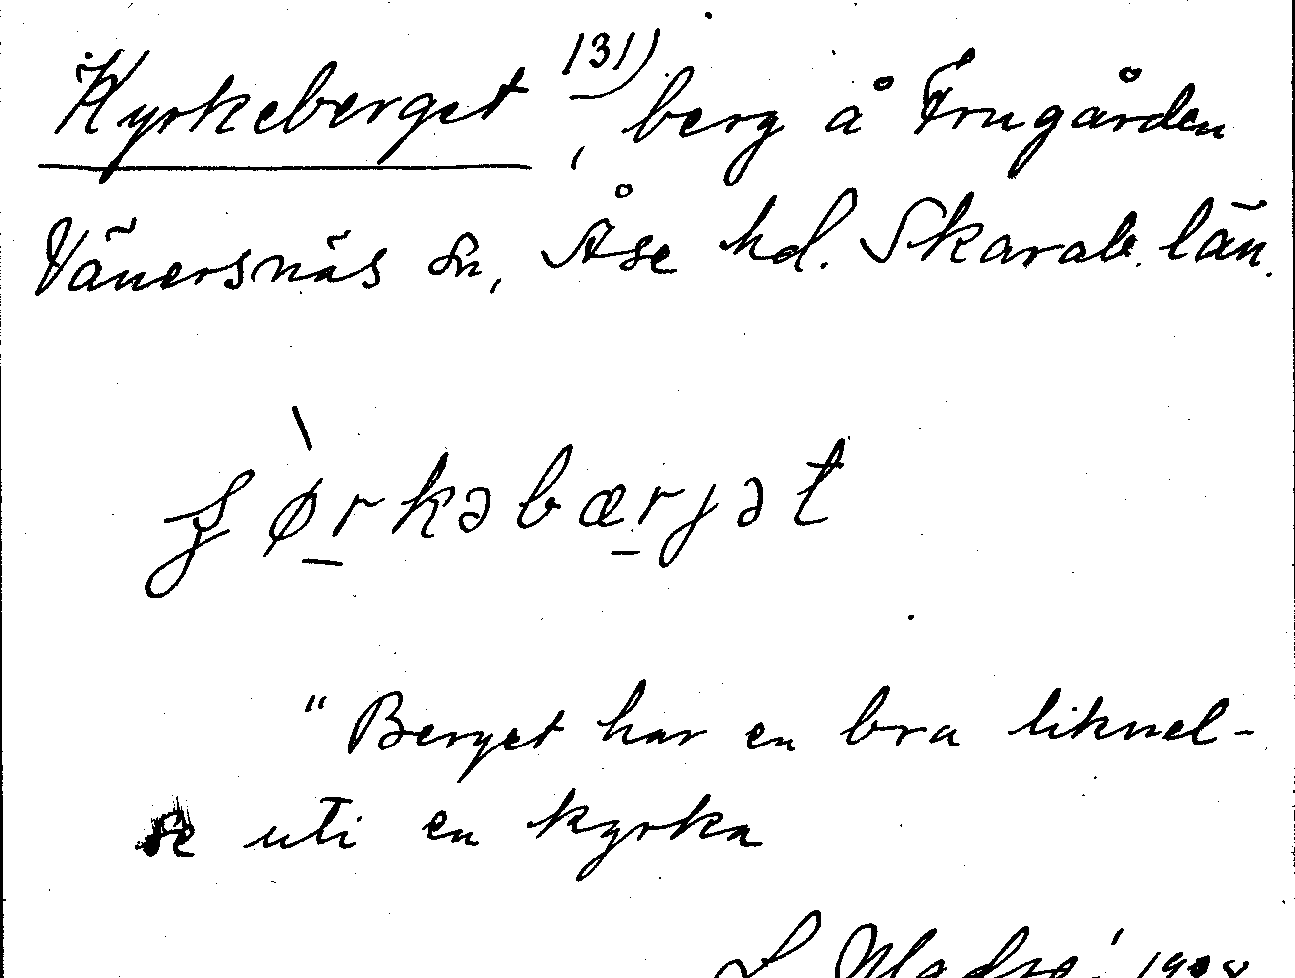 Kyrkeberget 131), berg å Frugården
Vänersnäs sn, Åse hd. Skarab. län.
"Berget har en bra liknel-
se uti en kyrka